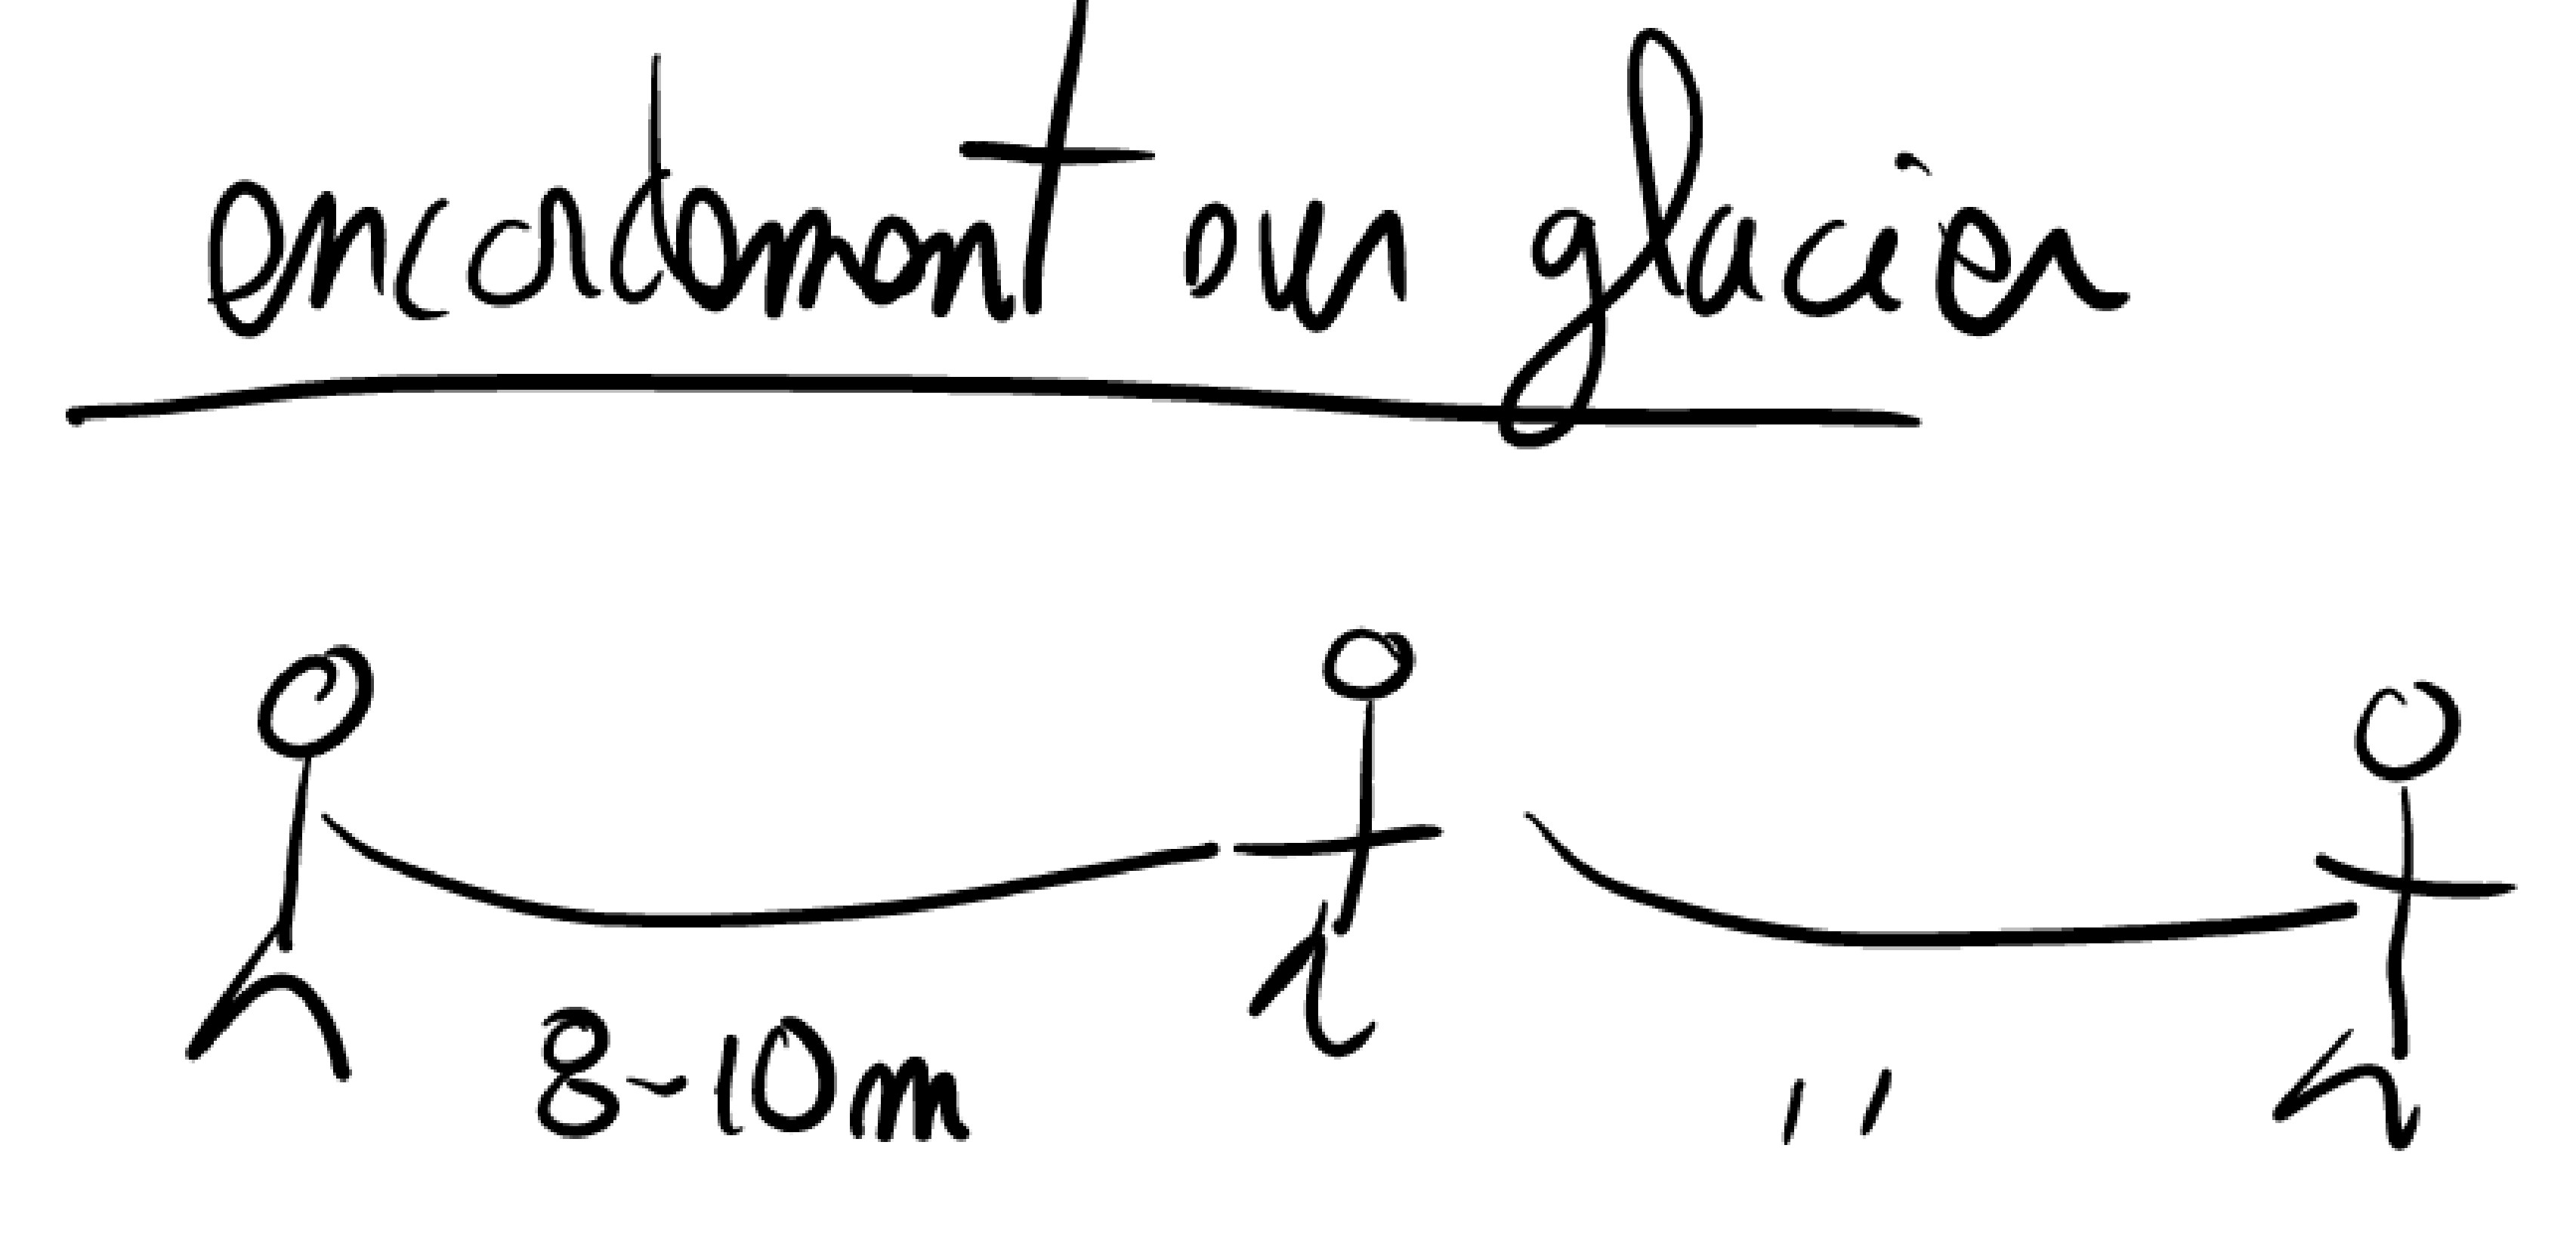 encordement sur glacier
8-10m
"